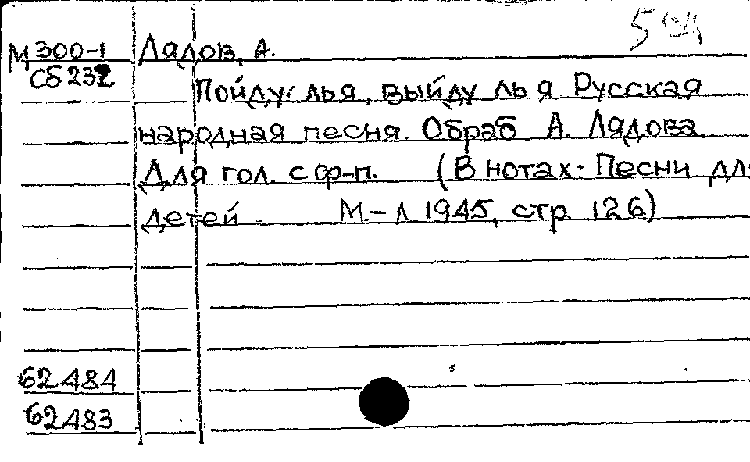 М300-1 Лядов, А.
Сб232
Пойду лья, выйду ль я Русская
народная песня. Обраб А. Лядова
Для гол. с ф-п. (В нотах: Песни для
детей. М-Л 1945, стр 126)
62484
62483